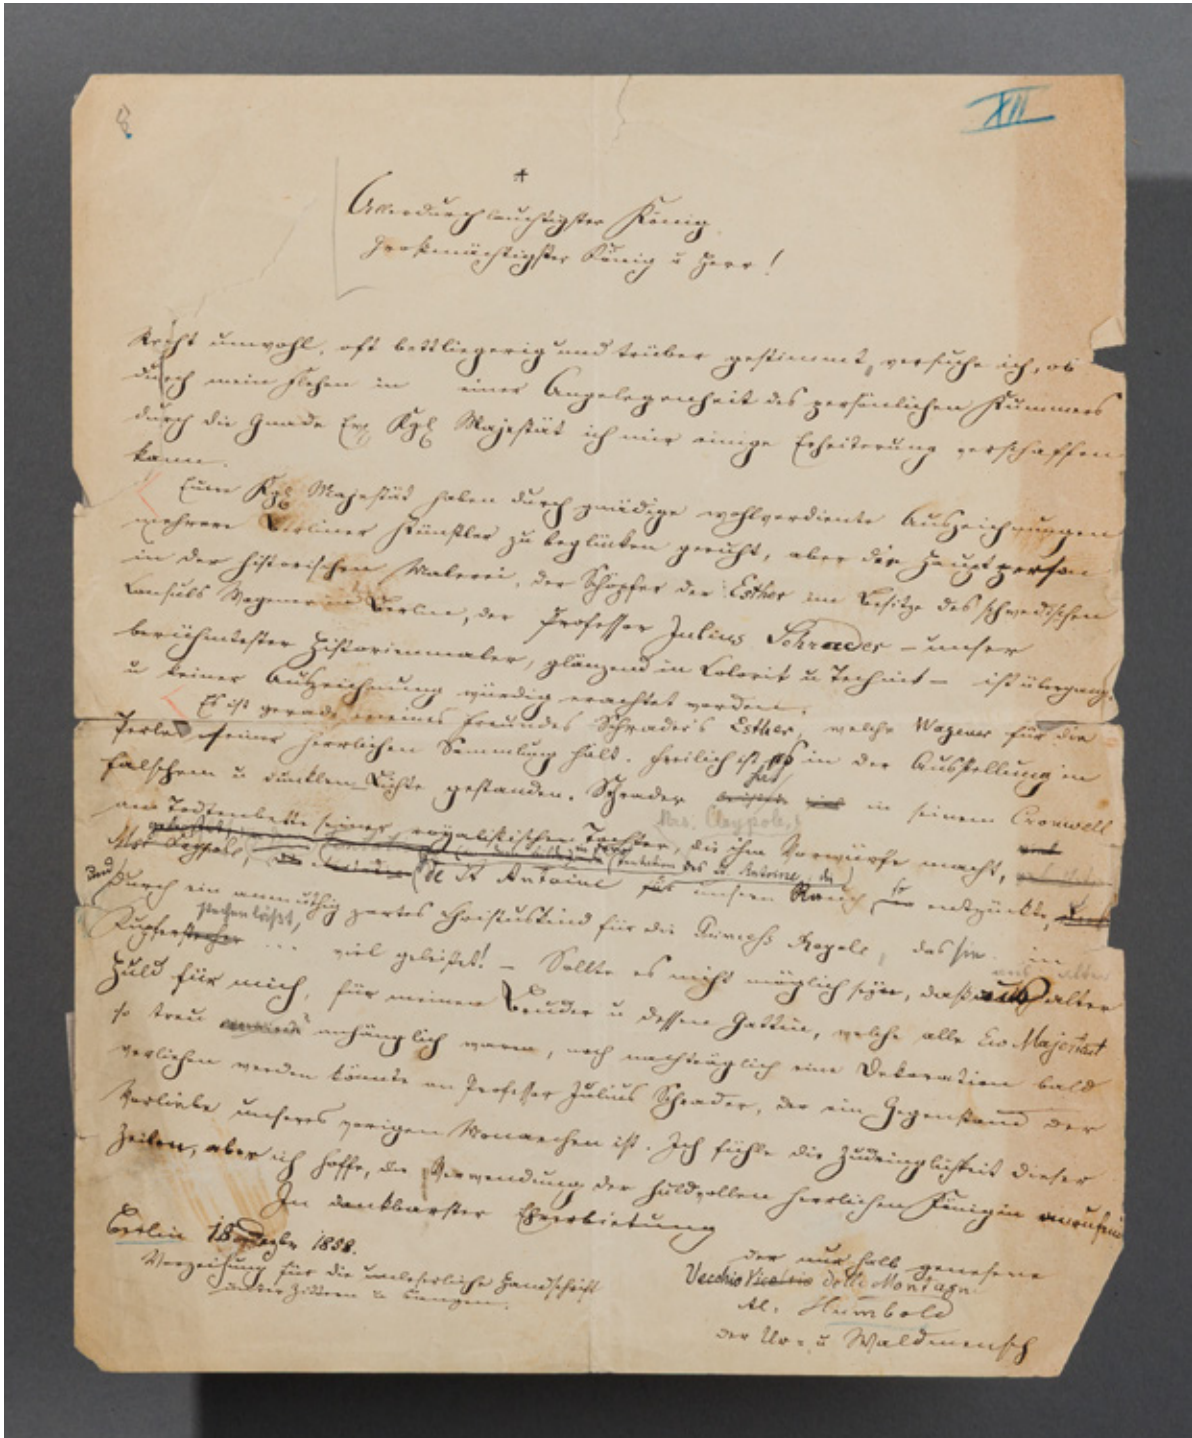 8
XII
+
Allerdurchlauchtigster König
Großmächtigster König u Herr!
Recht unwohl, oft bettliegerig und trüber gestimmt, versuche ich, ob
durch mein Flehen in einer Angelegenheit des persönlichen Kummers
durch die Gnade Ew Kgl Majestät ich mir einige Erheiterung verschaffen
kann.
Eure Kgl Majestät haben durch gnädige wohlverdiente Auszeichnungen
mehrere Berliner Künstler zu beglücken geruht, aber die Hauptperson
in der historischen Malerei, der Schöpfer der Esther im Besitze des schwedischen
Consuls Wagener in Berlin, der Professor Julius Schrader – unser
berühmtester Historienmaler, glänzend in Colorit u Technik – ist übergang.
u keiner Auszeichnung würdig erachtet worden.
Es ist gerade meines Freundes Schrader's Esther, welche Wagener für die
Perle seiner herrlichen Sammlung hält. Freilich ist in der Ausstellung in
falschem u dunklem Lichte gestanden. Schrader hat in seinem Cromwell
Mrs. Claypole,
am Todtenbette seiner royalistischen Tochter, die ihm Vorwürfe macht,
des St. Antoine, der
Mrs Claypole, de St Antoine für unsern Rauch so entzückte,
und durch ein anmuthig zartes Christuskind für die Princess Royale, das sie in
stechen läßt,
Kupfer ... viel geleistet! – Sollte es nicht möglich sein, daß aus alter
aus alter
Huld für mich, für meinen Bruder u dessen Gattin, welche alle Ew Majestät
so treu anhänglich waren, noch nachträglich eine Dekoration bald
verliehen werden könnte an Professor Julius Schrader, der ein Gegenstand der
Vorliebe unseres vorigen Monarchen ist. Ich fühle die Zudringlichkeit dieser
Zeilen, aber ich hoffe, die Verwendung der huldvollen herrlichen Königin anrufend
In dankbarster Ehrerbietung
Berlin 18 Dezbr 1858.
der nur halb genesene
Verzeihung für die unleserliche Handschrift
Vecchio delle Montagn
Al. Humbold
der Ur- u Waldmensch